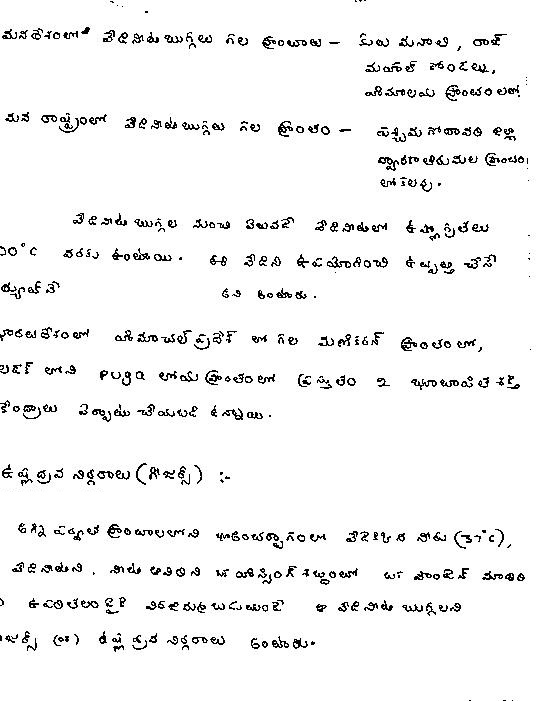 మనదేశంలో వేడినీటి బుగ్గలు గల ప్రాంతాలు - కులు మనాలి, రాజ్
మహల్ కొండలు,
హిమాలయ ప్రాంతంలలో
మన రాష్ట్రంలో వేడినీటి బుగ్గలు గల ప్రాంతం - పశ్చిమ గోదావరి జిల్లా
ప్రాంతం
లో కలవు.
వేడినీటి బుగ్గల నుంచి వెలువడే వేడినీటిలో ఉష్ణోగ్రతలు
00°C వరకు ఉంటాయి. ఈ వేడిని ఉపయోగించి ఉత్పత్తి చేసే
అని అంటారు.
భారతదేశంలో హిమాచల్ ప్రదేశ్ లో గల మణికరన్ ప్రాంతంలో,
లడక్ లోని Puga లోయ ప్రాంతంలో ప్రస్తుతం 2 భూతాపిత శక్తి
కేంద్రాలు ఏర్పాటు చేయబడి ఉన్నాయి.
ఉష్ణ ద్రవ నిర్గరాలు (గీజర్స్) :-
అగ్ని పర్వత ప్రాంతాలలోని భూఅంతర్భాగంలో వేడెక్కిన నీరు (37°C),
వేడినీటిని, నీటి ఆవిరిని శబ్దంలో ఒక ఫౌంటెన్ మాదిరి
ఉపరితలంపైకి ఈ వేడినీటి బుగ్గలని
గీజర్స్ (లేదా) ఉష్ణ ద్రవ నిర్గరాలు అంటారు.